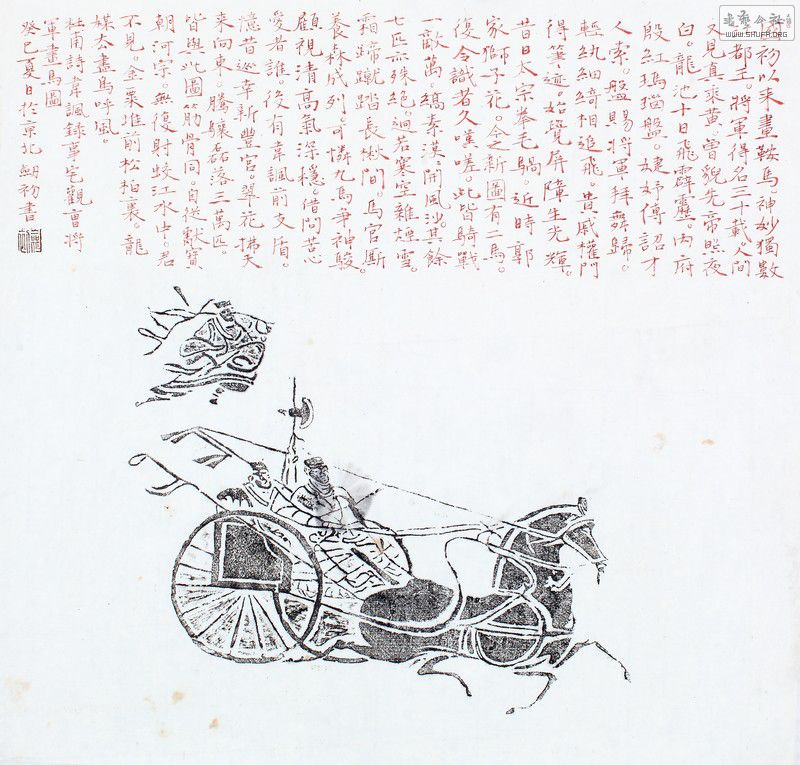 初以来畫鞍馬。神妙獨數
都王。將軍得名三十載。人間
又見真乘黃。曾貌先帝照夜
白。龍池十日飛霹靂。內府
殷紅瑪瑙盤。婕妤傳詔才
人索。盤賜將軍拜舞歸。
輕紈細綺相追飛。貴戚權門
得筆迹。始覺屏障生光輝。
昔日太宗拳毛騧。近時郭
家獅子花。今之新圖有二馬。
復令識者久嘆嗟。此皆騎戰
一敵萬。縞素漠開風沙。其餘
七匹亦殊絕。迥若寒空雜煙雪。
霜蹄蹴踏長楸間。馬官厮
養森成列。可憐九馬爭神駿。
顧視清高氣深穩。借問苦心
愛者誰。後有韋諷前支盾。
憶昔巡幸新豐宮。翠花拂天
来向東。騰驤磊落三萬匹。
皆與此圖筋骨同。自從獻寶
朝河宗。無復射蛟江水中。君
不見。金粟堆前松柏裏。龍
媒去盡鳥呼風。
杜甫詩韋諷錄事宅觀曹將
軍畫馬圖
癸巳夏日於京北 初書
WWW.SHUFA.ORG